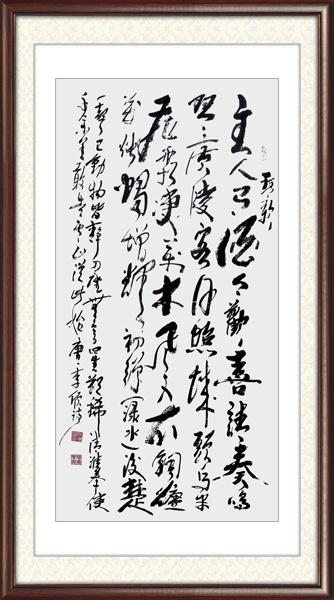 主人酒奏鳴
琴廣陵客月照城頭烏半
飛霜萬木風入衣銅爐
增輝初彈淥水後楚
一聲已動物皆靜四座無言星欲稀清淮奉使
千余里敢告雲山從此始唐李頎詩